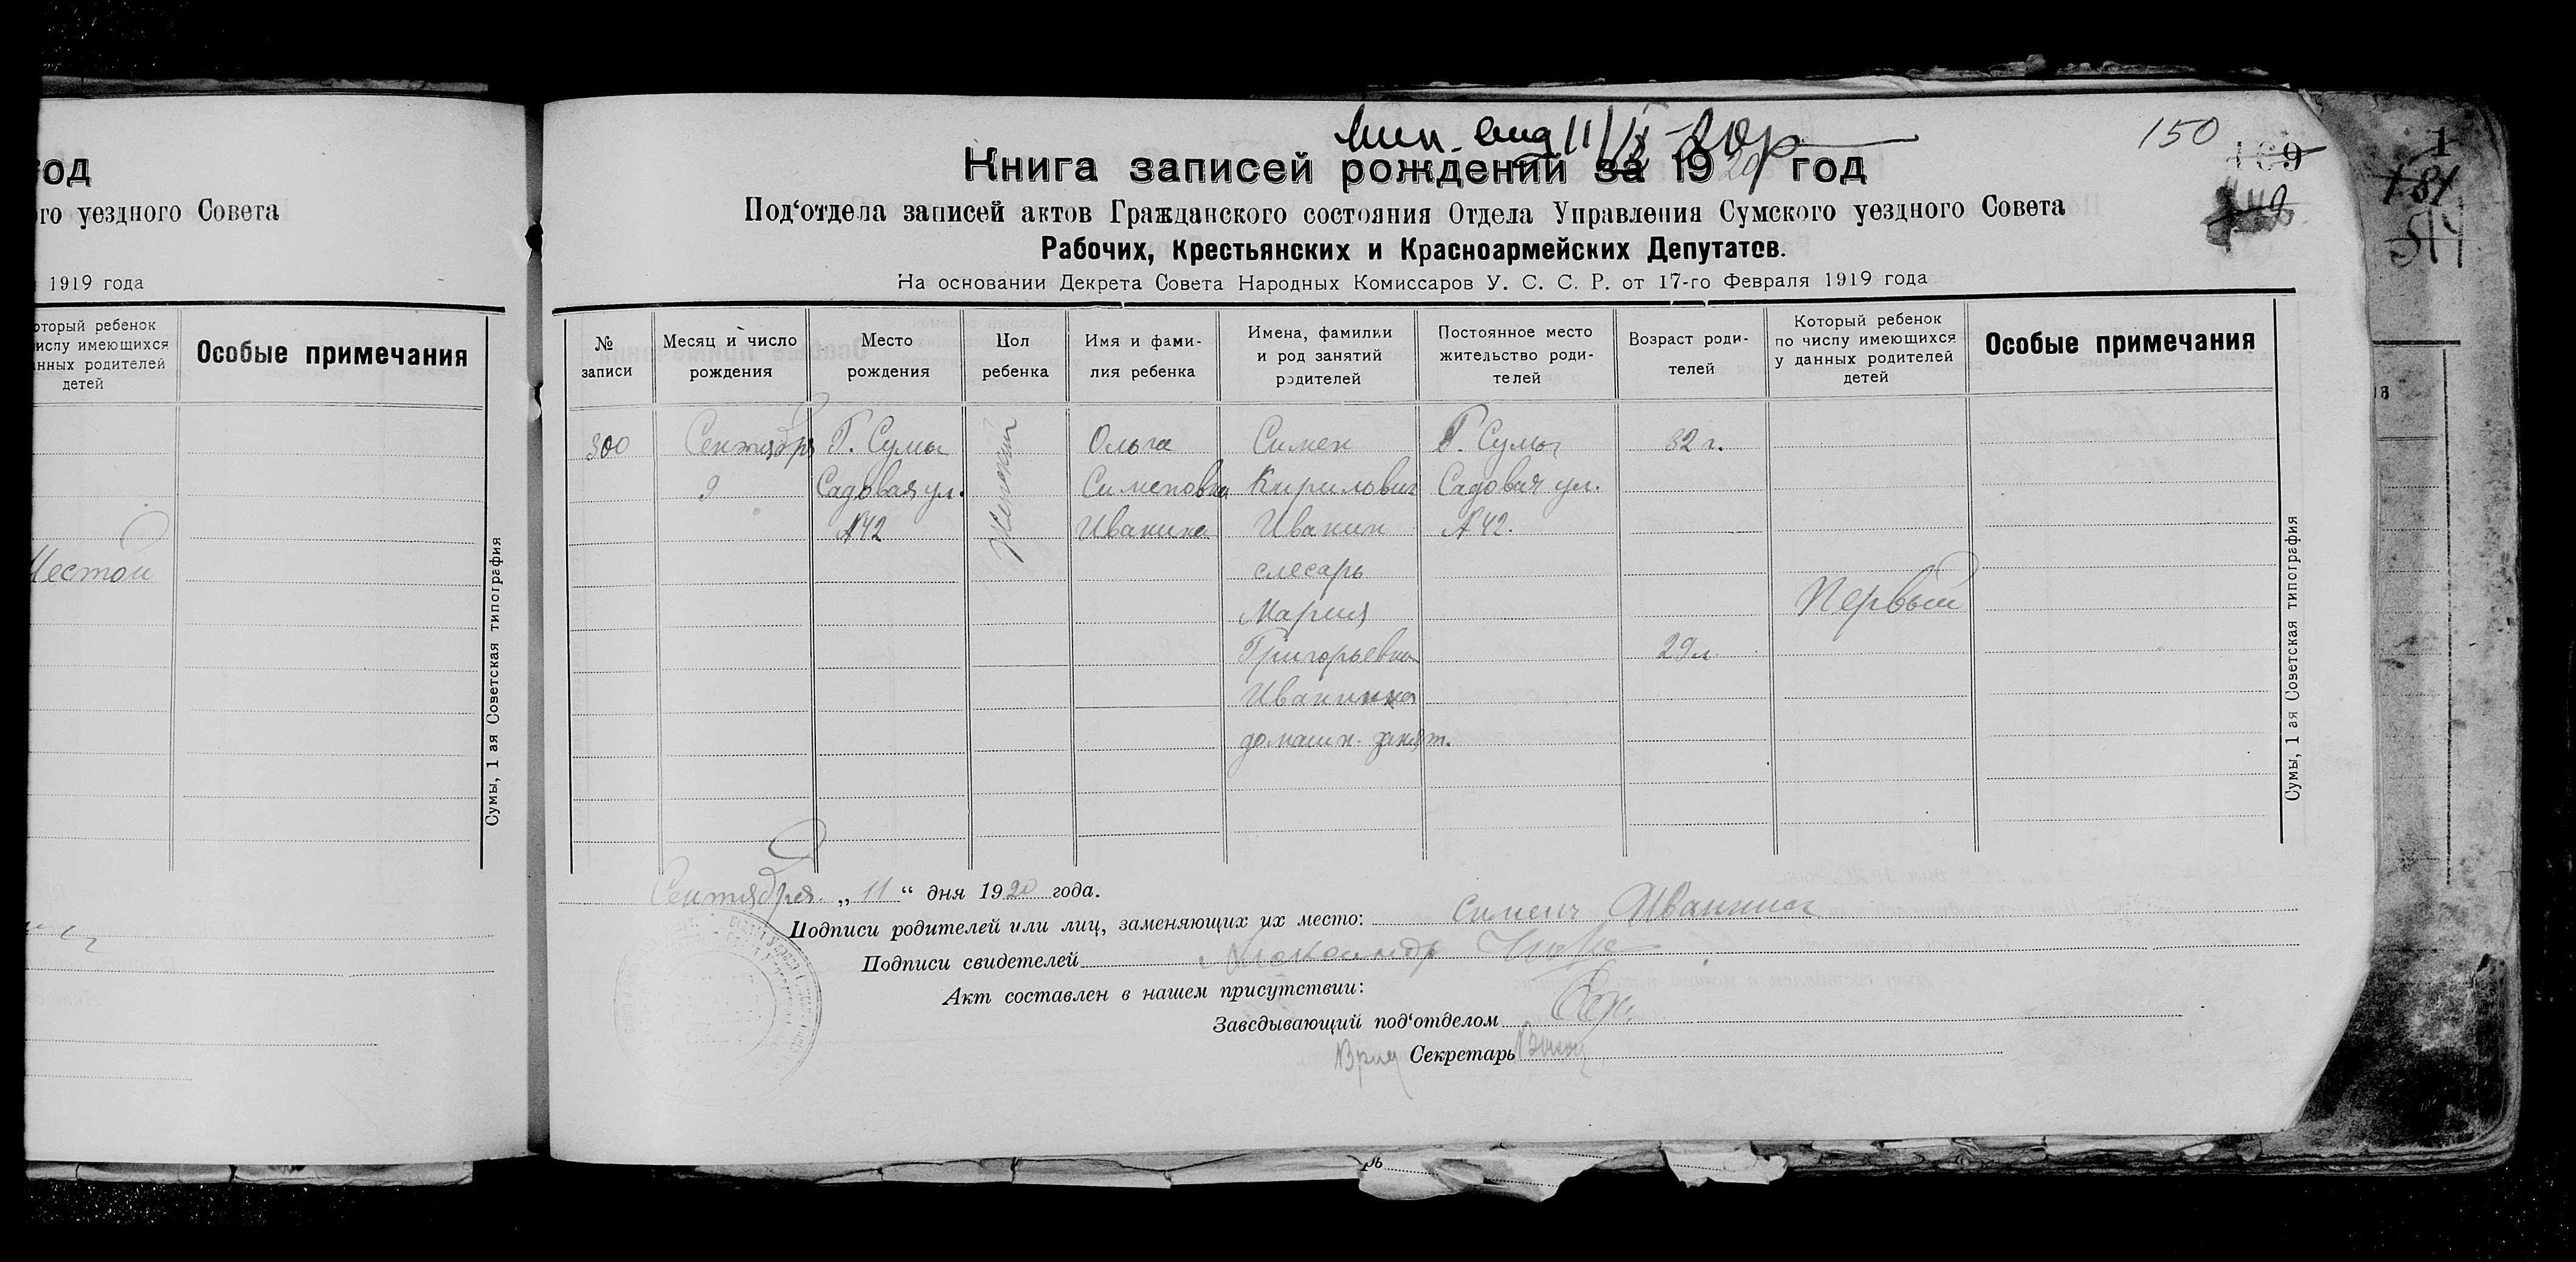 год
го уездного Совета
1919 года
который ребенок
числу имеющихся
данных родителей
детей
Особые примечания
Шестой
Сумы, 1 ая Советская типография
150
189
Книга записей рождений за 1920 год
Под‘отдела записей актов Гражданского состояния Отдела Управления Сумского уездного Совета
Рабочих, Крестьянских и Красноармейских Депутатов.
На основании Декрета Совета Народных Комиссаров У. С. С. Р. от 17-го Февраля 1919 года
№ записи
Месяц и число рождения
Место рождения
Пол ребенка
Имя и фами-
лия ребенка
Имена, фамилии
и род занятий
родителей
Постоянное место
жительство роди-
телей
Возраст роди-
телей
Который ребенок
по числу имеющихся
у данных родителей
детей
Особые примечания
300
Сентября
9
Г. Сумы
Садовая ул.
№42
Женский
Ольга
Сименовна
Иванина
Симен
Кирилович
Иванин
слесарь
Мария
Григорьевна
Иванина
домашн. занят.
Г. Сумы
Садовая ул.
№42.
32 г.
29 л
Первый
Сентября „11“ дня 1920 года.
Подписи родителей или лиц, заменяющих их место: Сименъ Иванин
Подписи свидетелей Александр
Акт составлен в нашем присутствии:
Заведывающий под‘отделом
Врид Секретарь
Сумы, 1 ая Советская типография
181